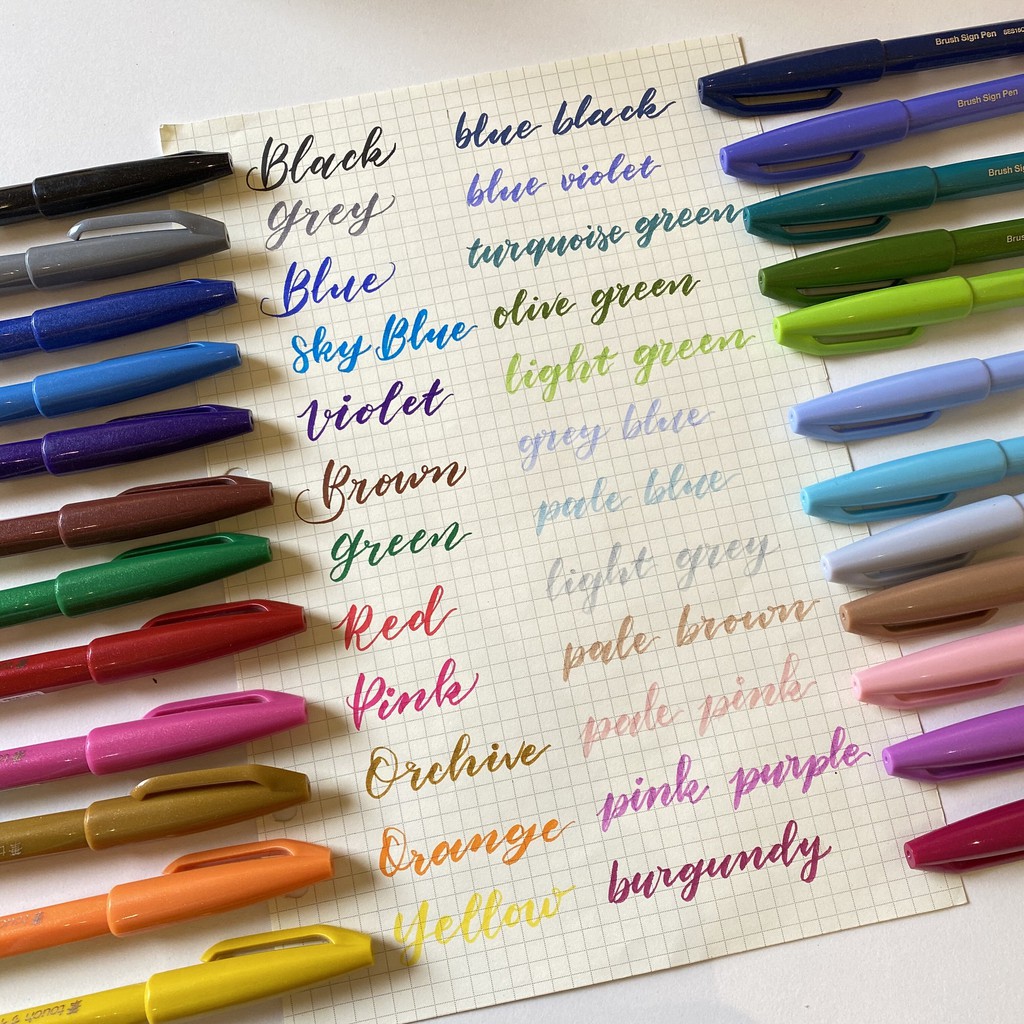 Black
Grey
Blue
Sky Blue
Violet
Brown
Green
Red
Pink
Orchive
Orange
Yellow
blue black
blue violet
turquoise green
olive green
light green
grey blue
pale blue
light grey
pale brown
pale pink
pink purple
burgundy
Brush Sign Pen
Brush Sign Pen
Brush Sig
touch